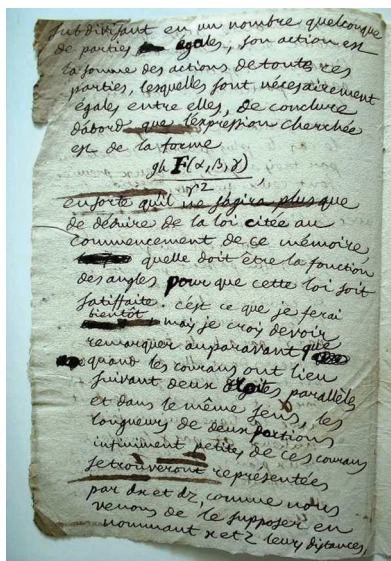 subdivisant en un nombre quelconque
de parties égales, son action est
la somme des actions de toutes ces
parties, lesquelles sont nécessairement
égales entre elles, de conclure
d'abord que l'expression cherchée
est de la forme
gh F(α, β, γ)
r²
ensorte qu'il ne s'agira plus que
de déduire de la loi citée au
commencement de ce mémoire,
quelle doit être la fonction
des angles pour que cette loi soit
satisfaite. c'est ce que je ferai
bientôt
mais je crois devoir
remarquer auparavant que
quand les courans ont lieu
suivant deux droites parallèles
et dans le même sens, les
longueurs de deux portions
infiniment petites de ces courans
se trouveront représentées
par dx et dz, comme nous
venons de le supposer en
nommant x et z leurs distances